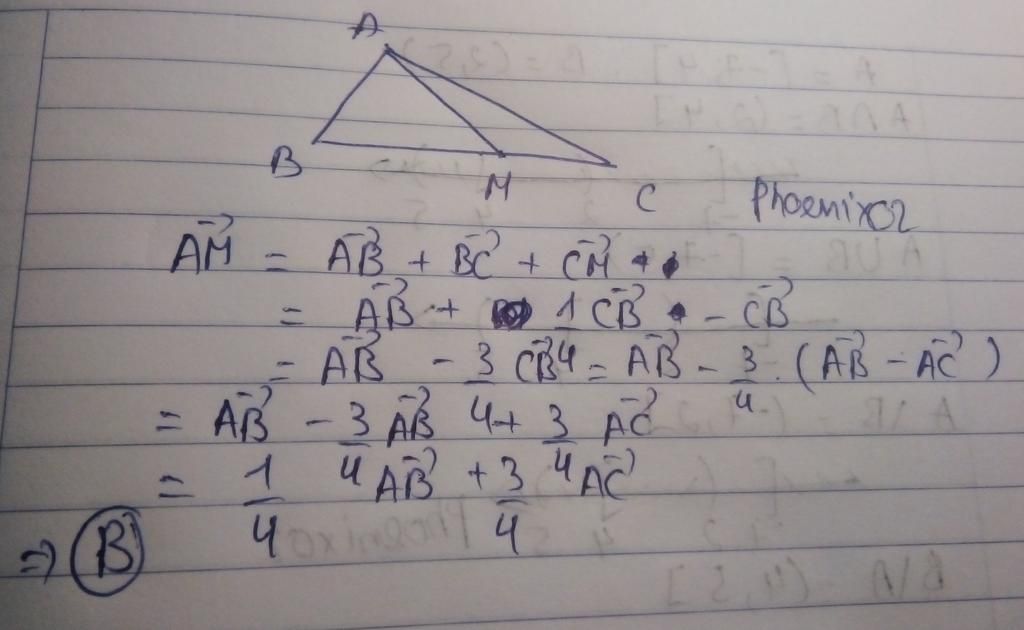 A
B
M
C
Phoenix02
AM⃗ = AB⃗ + BC⃗ + CM⃗
= AB⃗ + 1/4 CB⃗ - CB⃗
= AB⃗ - 3/4 CB⃗ = AB⃗ - 3/4 . (AB⃗ - AC⃗)
= AB⃗ - 3/4 AB⃗ + 3/4 AC⃗
= 1/4 AB⃗ + 3/4 AC⃗
⇒ B